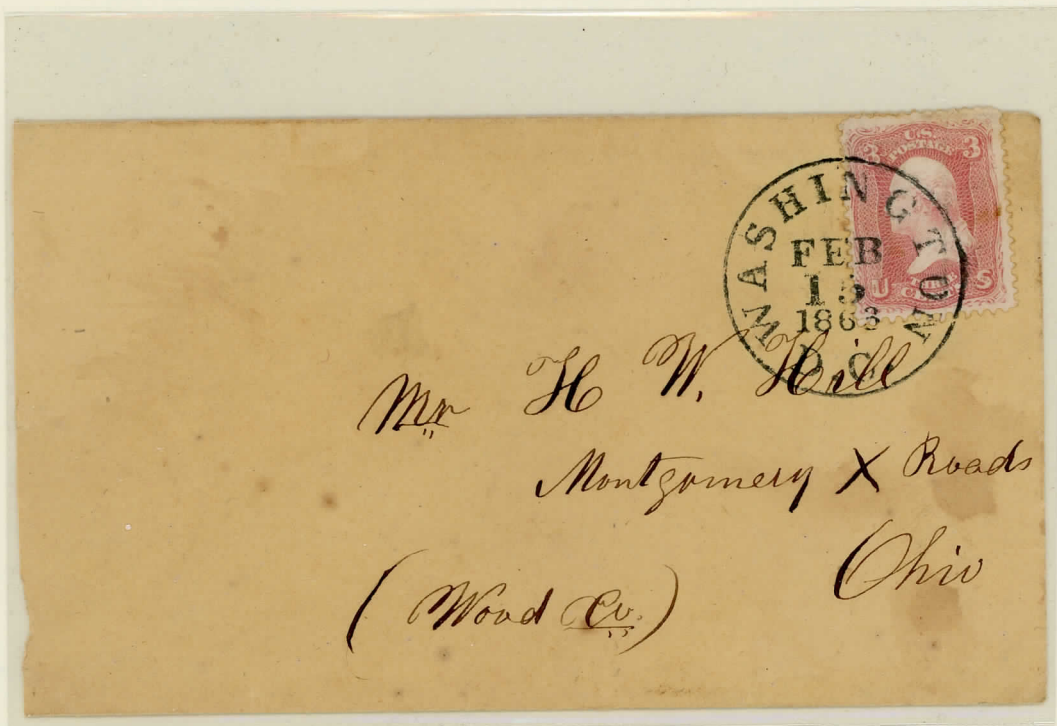 3 U.S. 3
POSTAGE
THREE
U S
WASHINGTON
FEB
13
1863
D.C.
Mr H W. Hill
Montgomery X Roads
Ohio
(Wood Co.)